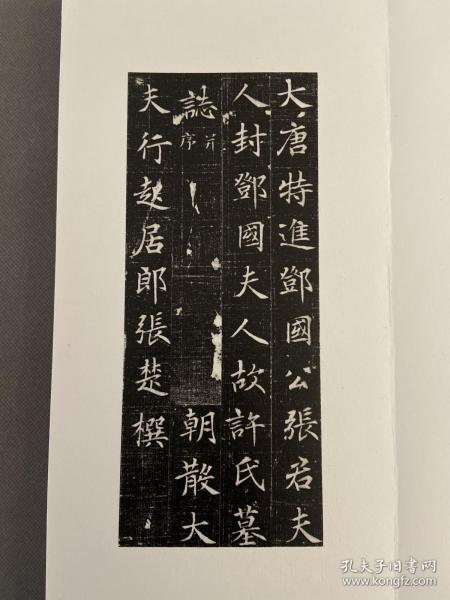 大唐特進鄧國公張君夫
人封鄧國夫人故許氏墓
誌并序 朝散大
夫行起居郎張楚撰
孔夫子旧书网
www.kongfz.com